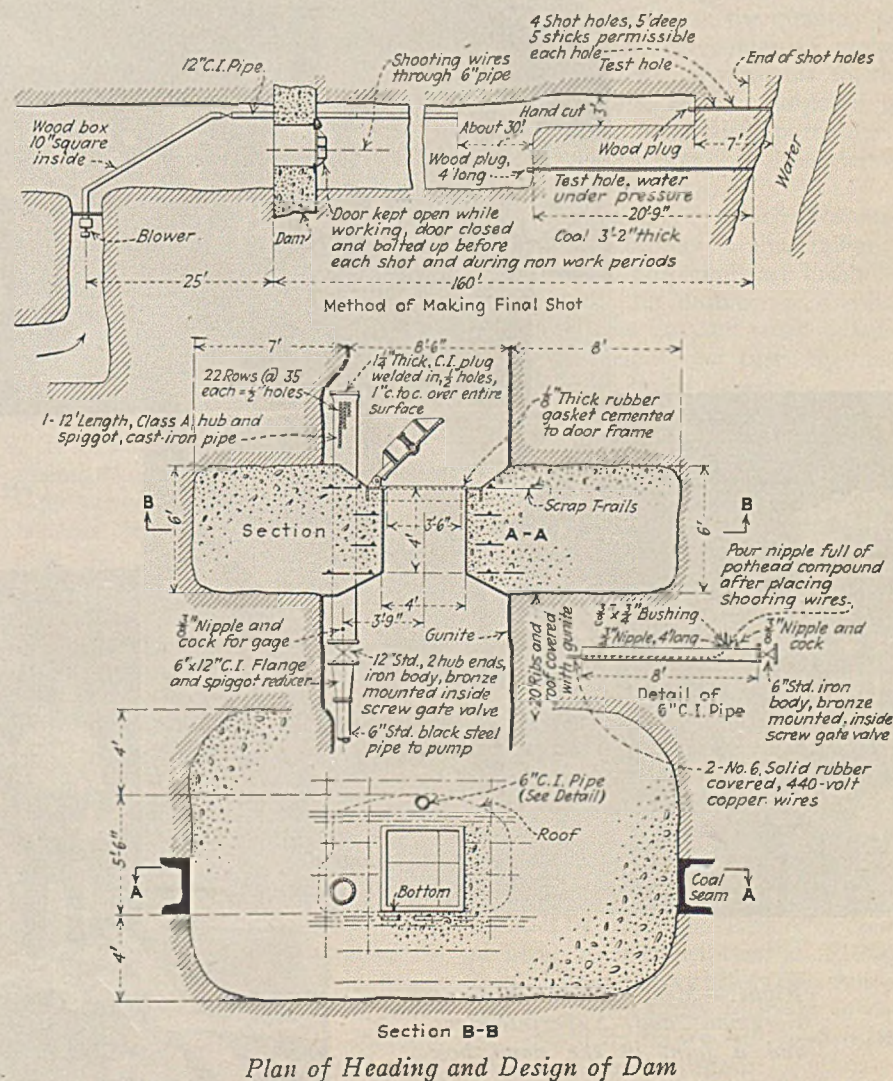 4 Shot holes, 5' deep
5 sticks permissible
each hole
Test hole
End of shot holes
12" C.I. Pipe
Shooting wires
through 6" pipe
Wood box
10" square
inside
Hand cut
About 30'
Wood plug
7'
Water
Wood plug,
4' long
Test hole, water
under pressure
20'-9"
Coal 3'-2" thick
Blower
Dam
Door kept open while
working, door closed
and bolted up before
each shot and during non work periods
25'
160'
Method of Making Final Shot
7'
8'-6"
8'
22 Rows @ 35
each = ½" holes
1¼" Thick, C.I. plug
welded in, ½ holes,
1" c. to c. over entire
surface
⅛" Thick rubber
gasket cemented
to door frame
1- 12' Length, Class A, hub and
spiggot, cast-iron pipe
Scrap T-rails
B
6'
Section
3'-6"
4'
A-A
6'
B
4'
3'-9"
Pour nipple full of
pothead compound
after placing
shooting wires
Bushing
Nipple, 4" long
Nipple and
cock
Nipple and
cock for gage
Gunite
6" x 12" C.I. Flange
and spiggot reducer
12" Std., 2 hub ends,
iron body, bronze
mounted inside
screw gate valve
20' Ribs and
roof covered
with gunite
8'
Detail of
6" C.I. Pipe
6" Std. iron
body, bronze
mounted, inside
screw gate valve
6" Std. black steel
pipe to pump
2-No. 6, Solid rubber
covered, 440-volt
copper wires
4'
5'-6"
4'
6" C.I. Pipe
(See Detail)
Roof
Bottom
A
Coal
seam
A
Section B-B
Plan of Heading and Design of Dam